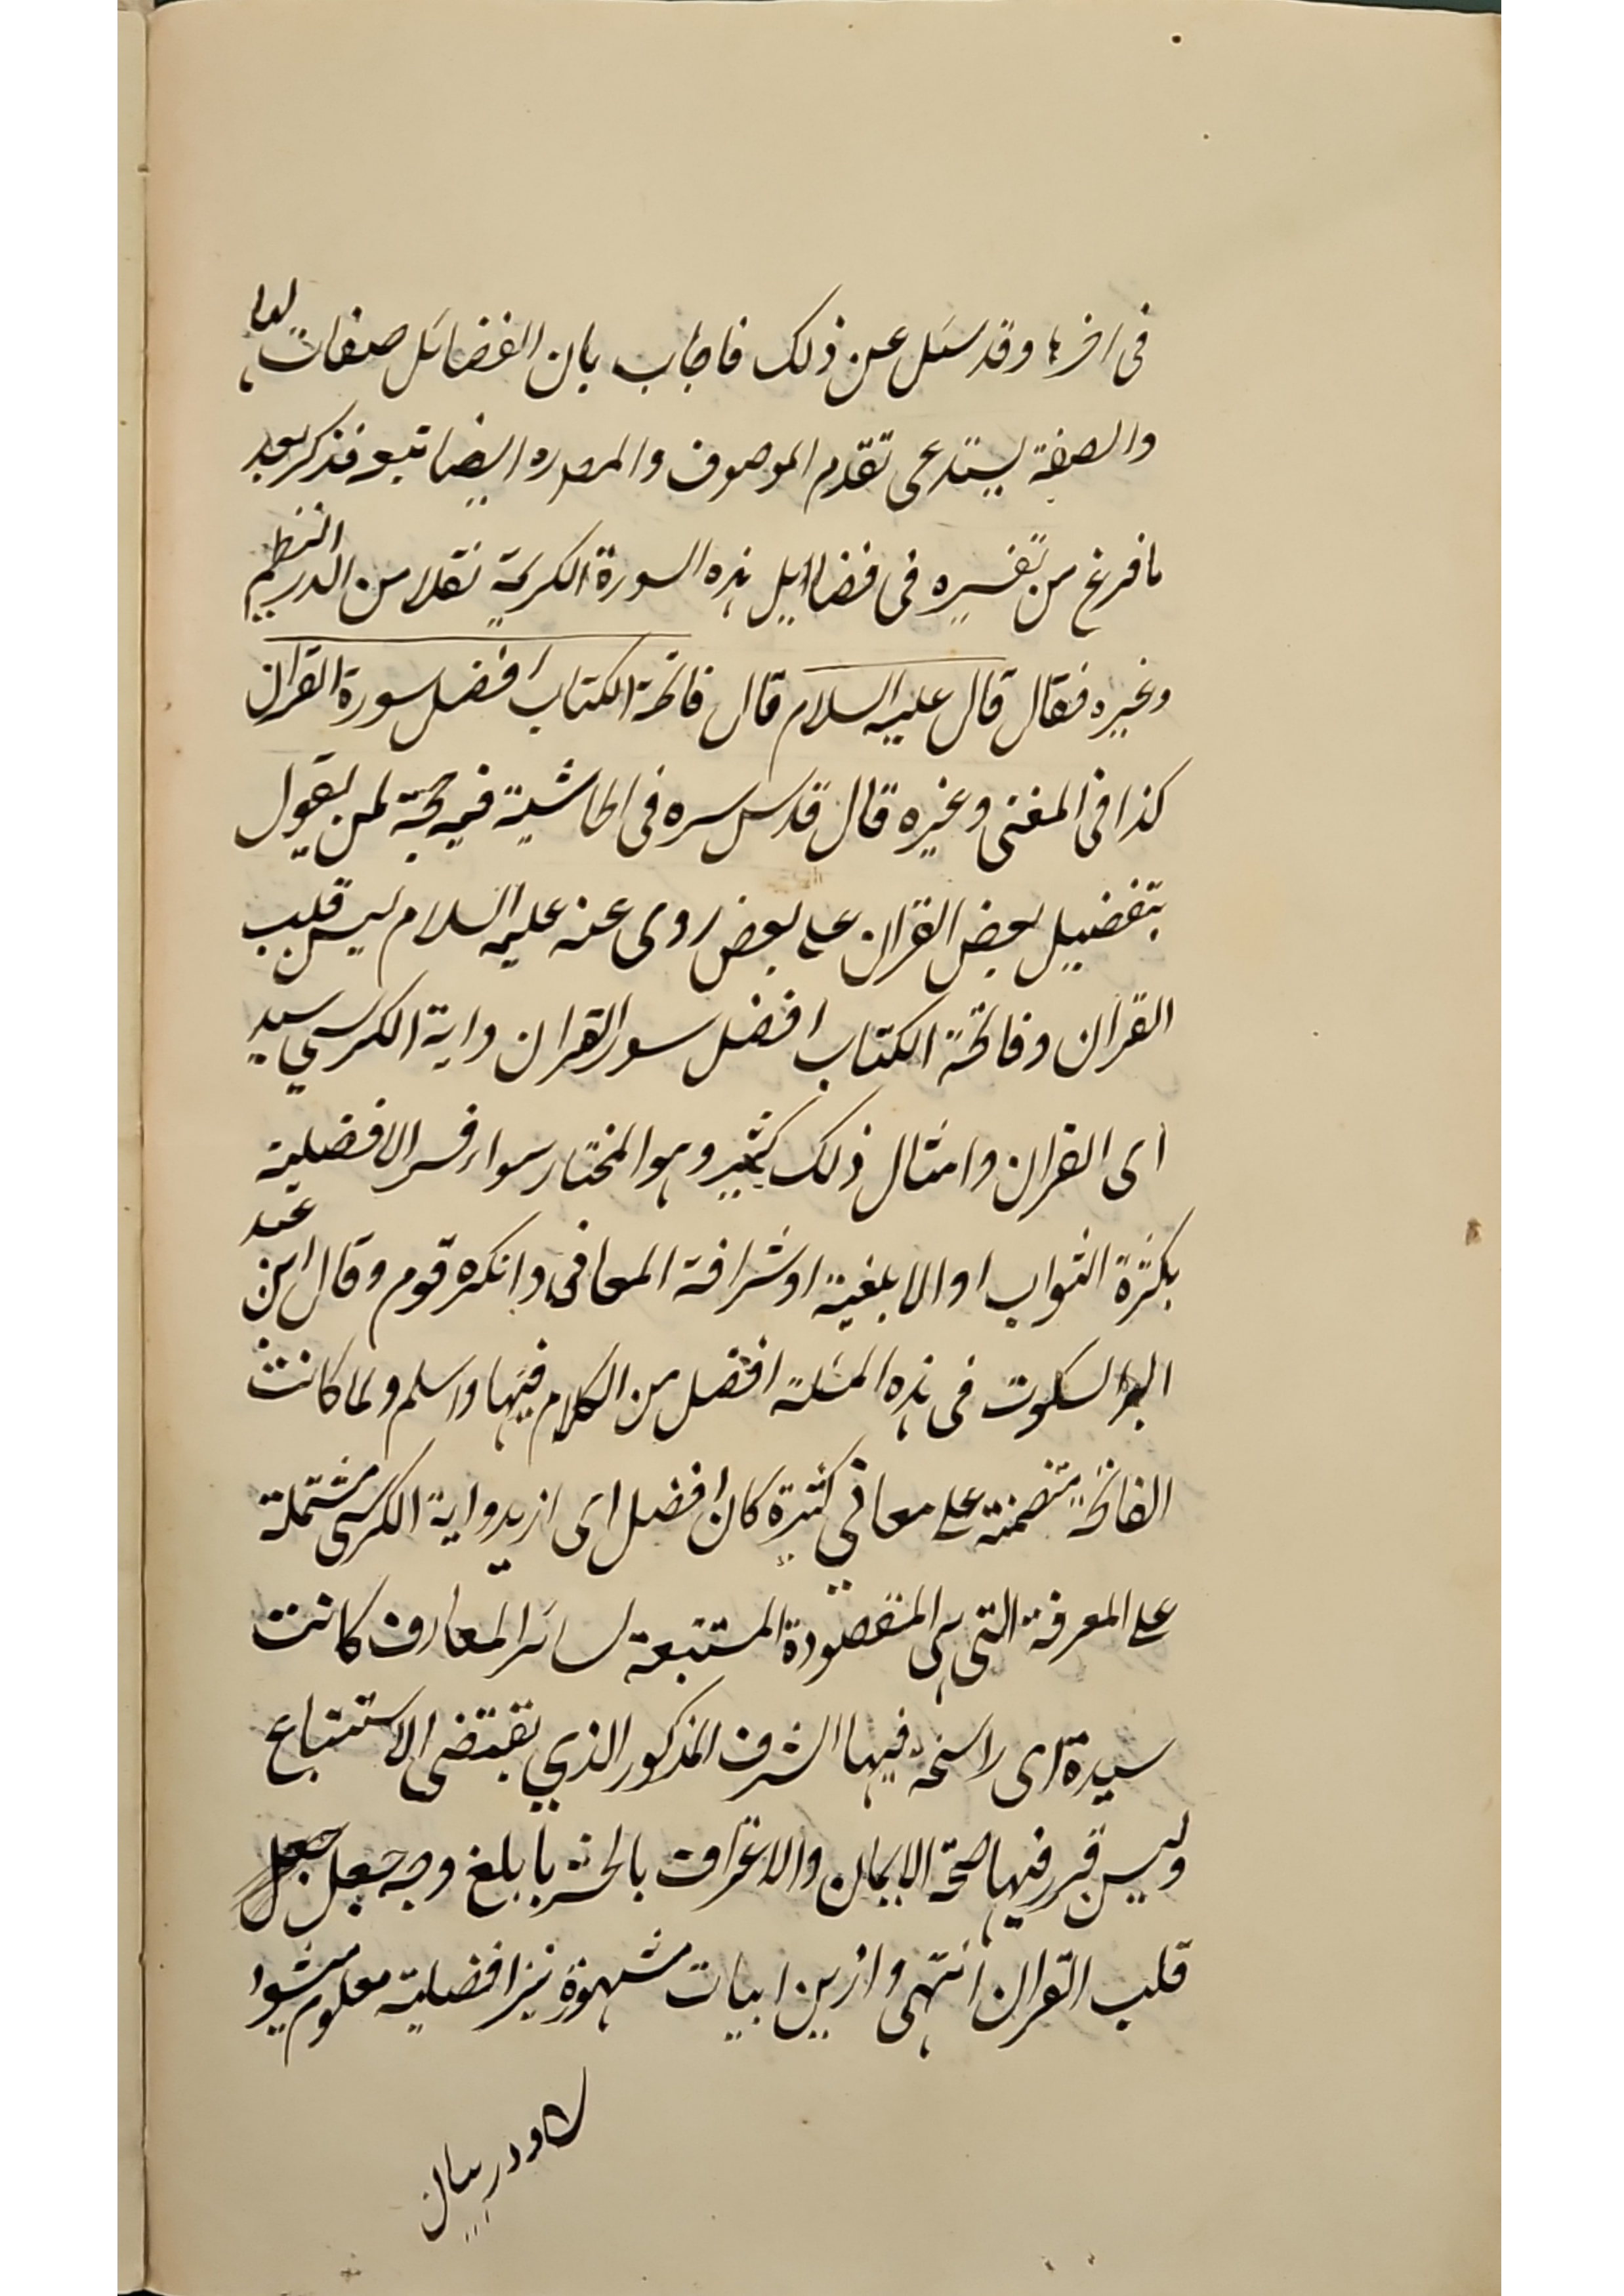 فى اخرها وقد سئل عن ذلك فاجاب بان الفضائل صفات لها
والصفة يستدعى تقدم الموصوف ايضا تبعه فذكر بعد
ما فرغ من تفسيره فى فضاایل هذه السورة الكريمة نقلا من الدر النظيم
وغيره فقال قال عليه السلام قال فاتحة الكتاب افضل سورة القران
كذا فى المغنى وغيره قال قدس سره فى الحاشية فيه حجة لمن يقول
بتفضيل بعض القران على بعض روى عنه عليه السلام يس قلب
القران وفاتحة الكتاب افضل سور القران واية الكرسي سيد
اى القران وامثال ذلك كثير وهو المختار سواء فسر الافضلية
بكثرة الثواب او الابلغية او شرافة المعانى وانكره قوم وقال ابن عبد
البر السكوت فى هذه المسئلة افضل من الكلام فيها واسلم ولما كانت
الفاتحة متضمنة على معاني كثيرة كان افضل اى ازيد واية الكرسى مشتملة
على المعرفة التى هى المقصودة المستتبعة لسائر المعارف كانت
سيدة اى راسخة فيها الشرف المذكور الذي يقتضى الاستتباع
وليس قرر فيها صحة الايمان والاعتراف بالحشر بابلغ وجه جعل جعل
قلب القران انتهى وازين ابيات مشهوة نيز افضلية معلوم ميشود